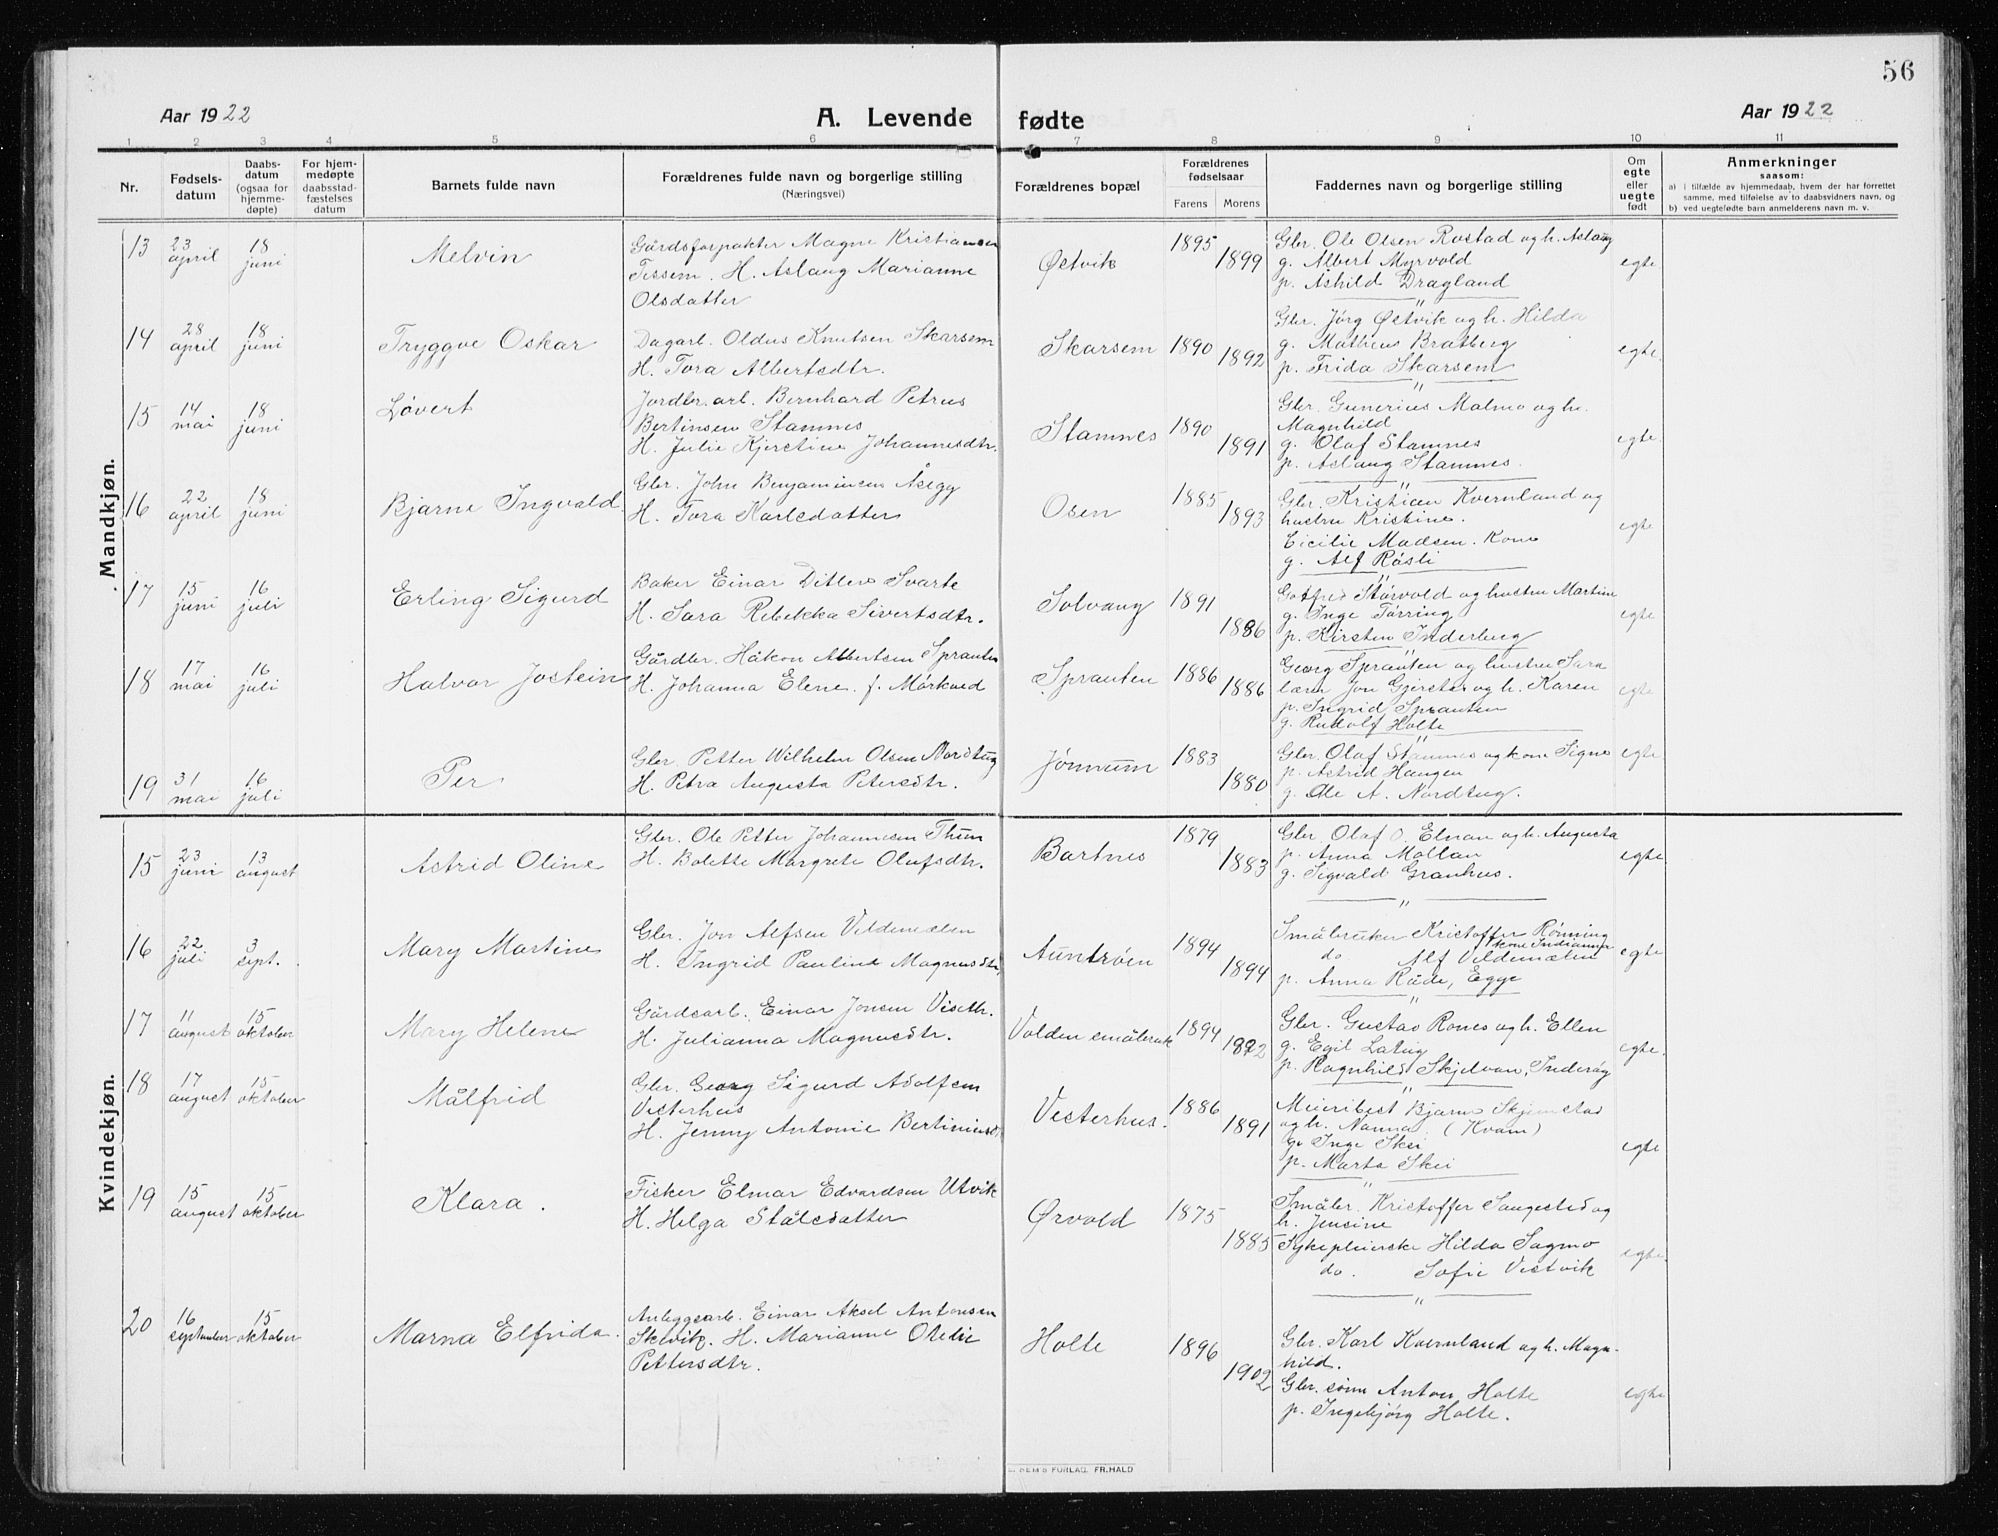 56
Aar 1922
A. Levende fødte
Aar 1922
1 2 3 4 5 6 7 8 9 10 11
Nr.
Fødsels-
datum
Daabs-
datum
(ogsaa for
hjemme-
døpte)
For hjem-
medøpte
daabsstad-
fæstelses
datum
Barnets fulde navn
Forældrenes fulde navn og borgerlige stilling
(Næringsvei)
Forældrenes bopæl
Forældrenes
fødselsaar
Farens Morens
Faddernes navn og borgerlige stilling
Om
egte
eller
uegte
født
Anmerkninger
saasom:
a) i tilfælde av hjemmedaab, hvem der har forrettet
samme, med tilføielse av to daabsvidners navn, og
b) ved uegtefødte barn anmelderens navn m. v.
Mandkjøn.
13 23 april 18 juni Melvin
Gårdsforpakter Magne Kristiansen
Tessem. H. Aslaug Marianne
Olsdatter
Østvik 1895 1899
Gbr. Ole Olsen Rostad og h. Aslaug
g. Albert Myrvold
p. Åshild Dragland
egte
14 28 april 18 juni Tryggve Oskar
Dagarb. Oldus Knutsen Skarsem
H. Tora Albertsdtr.
Skarsem 1890 1892
Gbr. Jørg Østvik og h. Hilda
g. Matheus Bratberg
p. Frida Skarsem
egte
15 14 mai 18 juni Løvert
Jordbr. arb. Bernhard Petrus
Bertinsen Stamnes
H. Julie Kjerstine Johannesdtr.
Stamnes 1890 1891
Gbr. Gunerius Malmo og h.
Magnhild
g. Olaf Stamnes
p. Aslaug Stamnes.
egte
16 22 april 18 juni Bjarne Ingvald
Gbr. John Benjaminsen Åsegg
H. Tora Karlsdatter
Osen 1885 1893
Gbr. Kristian Kvernland og
hustru Kristine.
Cicilie Madsen. Kone
g. Alf Røsli
egte
17 15 juni 16 juli Erling Sigurd
Baker Einar Ditlev Svarte
H. Sara Rebekka Sivertsdtr.
Solvang 1891 1886
Gotfred Størvold og hustru Martine
g. Inge Tørring
p. Kirsten Inderberg
egte
18 17 mai 16 juli Halvor Jostein
Gårdbr. Håkon Albertsen Sprauten
H. Johanna Elene f. Mørkved
Sprauten 1886 1886
Georg Sprauten og hustru Sara
lærer Jon Gjerstad og h. Karen
p. Ingrid Sprauten
g. Rudolf Holte
egte
19 31 mai 16 juli Per
Gbr. Petter Wilhelm Olsen Nordtug
H. Petra Augusta Petersdtr.
Jønnum 1883 1880
Gbr. Olaf Stamnes og kone Signe
p. Astrid Haugen
g. Ole A. Nordtug.
egte
Kvindekjøn.
15 23 juni 13 august Astrid Oline
Gbr. Ole Petter Johannesen Thun
H. Bolette Margrete Olufsdtr.
Bartnes 1879 1883
Gbr. Olaf O. Elnan og h. Augusta
p. Anna Mollan
g. Sigvald Granhus.
egte
16 22 juli 3 sept. Mary Martine
Gbr. Jon Alfsen Vildemælen
H. Ingrid Pauline Magnusdtr.
Auntrøen 1894 1894
Småbruker Kristoffer Rønning
kone Indianna
do Alf Vildemælen
p. Anna Råde, Egge
egte
17 11 august 15 oktober Mary Helene
Gårdsarb. Einar Jonsen Viseth.
H. Julianna Magnusdtr.
Volden småbruk 1894 1892
Gbr. Gustav Rones og h. Ellen
g. Egil Latug
p. Ragnhild Skjelvan, Inderøy
egte.
18 17 august 15 oktober Målfrid
Gbr. Georg Sigurd Adolfsen
Vesterhus
H. Jenny Antonie Bertiniusd.
Vesterhus. 1886 1891
Meieribest Bjarne Skjemstad
og h. Nanna. (Kvam)
g. Inge Skei
p. Marta Skei
egte
19 15 august 15 oktober Klara.
Fisker Elmar Edvardsen Utvik
H. Helga Stålsdatter
Ørvold 1875 1885
Småbr. Kristoffer Saugested og
h. Jensine
Sykepleierske Hilda Sagmo
do. Sofie Vestvik
egte.
20 16 september 15 oktober Marna Elfrida.
Anleggsarb. Einar Aksel Antonsen
Skevik. H. Marianne Otelie
Pettersdtr.
Holte 1896 1902
Gbr. Karl Kvernland og h. Magn-
hild.
Gbr. sønn Anton Holte
p. Ingebjørg Holte.
egte
FORLAG, FR. HALD